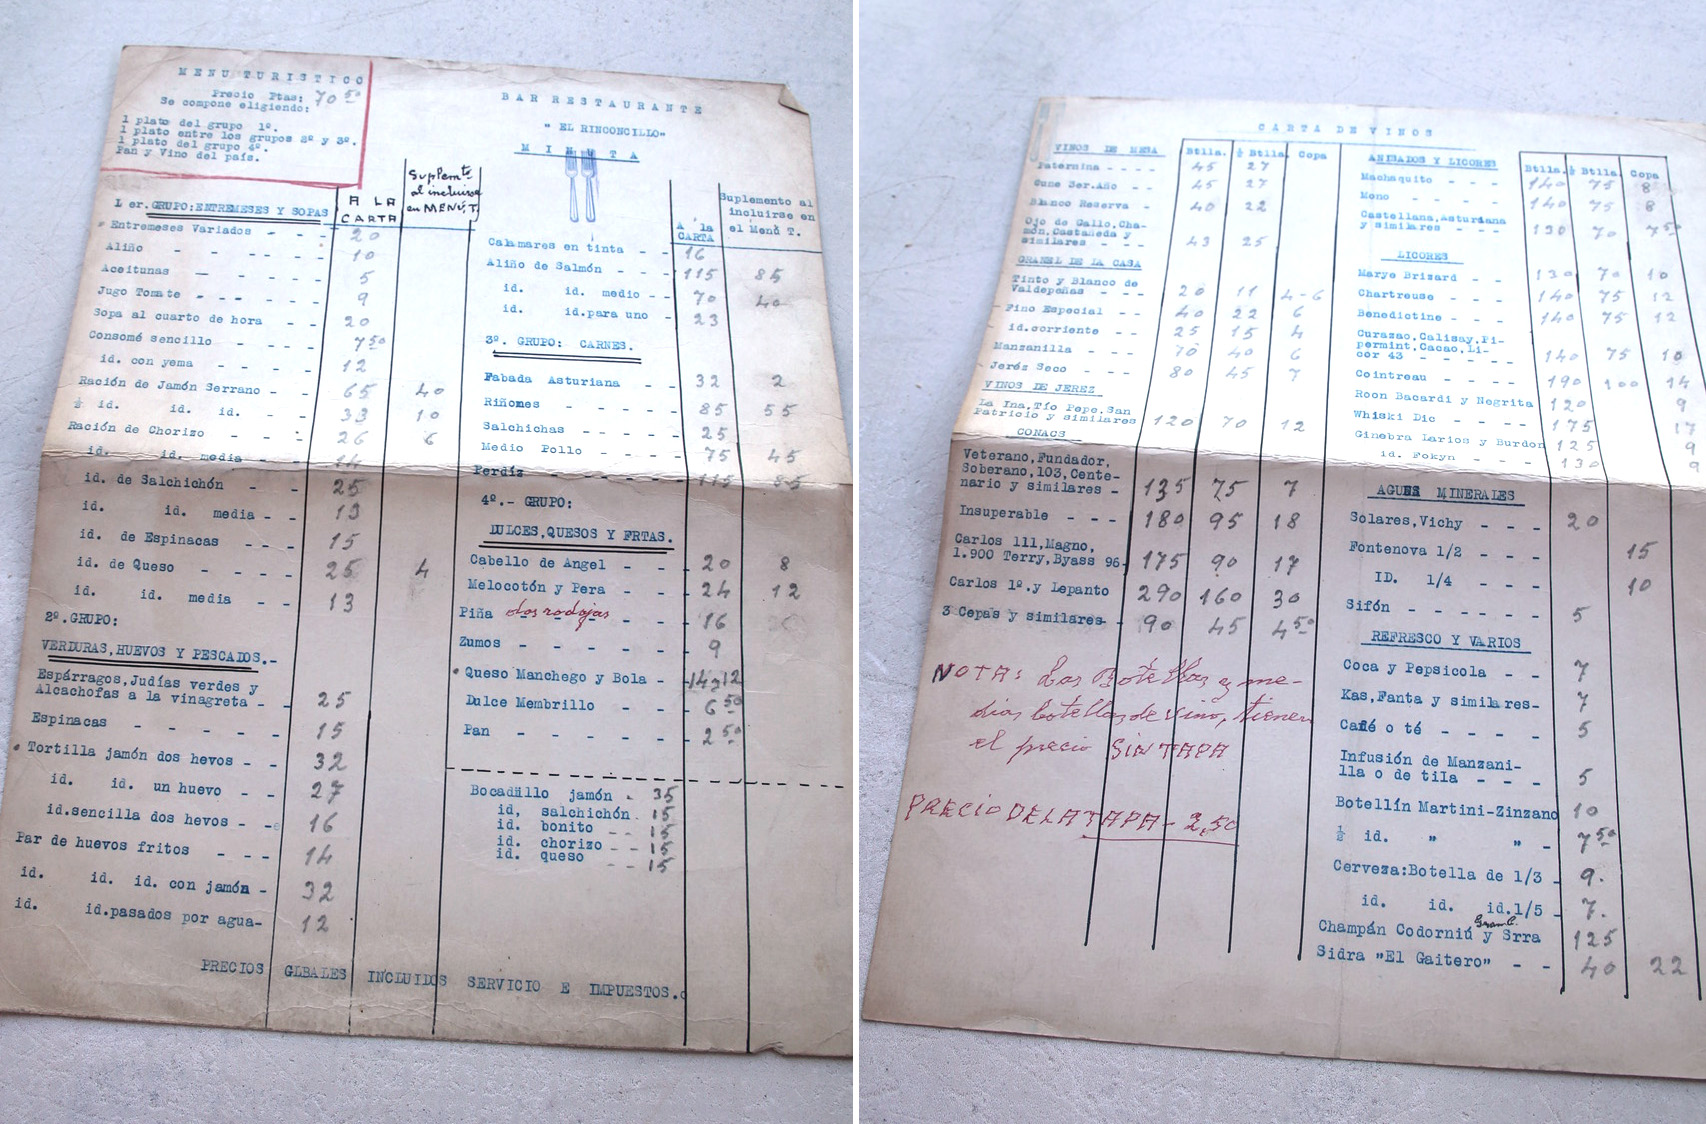 MENU TURISTICO
Precio Ptas: 70 50
Se compone eligiendo:
1 plato del grupo 1º.
1 plato entre los grupos 2º y 3º.
1 plato del grupo 4º.
Pan y Vino del país.
A LA CARTA
Suplemto al incluirse en MENÚ.T.
1 er. GRUPO: ENTREMESES Y SOPAS
Entremeses Variados - - - 20
Aliño - - - - - 10
Aceitunas - - - - 5
Jugo Tomate - - - - 9
Sopa al cuarto de hora - - 20
Consomé sencillo - - - 7 50
id. con yema - - - - 12
Ración de Jamón Serrano - - - 65 40
½ id. id. id. - - - 33 10
Ración de Chorizo - - - 26 6
id. id. media - - 14
id. de Salchichón - - 25
id. id. media - - 13
id. de Espinacas - - 15
id. de Queso - - - - 25 4
id. id. media - - 13
2º.GRUPO:
VERDURAS, HUEVOS Y PESCADOS.-
Espárragos, Judías verdes y
Alcachofas a la vinagreta - - 25
Espinacas - - - - - 15
Tortilla jamón dos hevos - - 32
id. id. un huevo - - 27
id.sencilla dos hevos - - 16
Par de huevos fritos - - - 14
id. id. id. con jamón - 32
id. id.pasados por agua- 12
BAR RESTAURANTE
"EL RINCONCILLO"
MINUTA
A la CARTA
Suplemento al incluirse en el Menú T.
Calamares en tinta - - 16
Aliño de Salmón - - - 115 85
id. id. medio - - 70 40
id. id.para uno - - 23
3º. GRUPO: CARNES.
Fabada Asturiana - - 32 2
Riñones - - - - - 85 55
Salchichas - - - - - 25
Medio Pollo - - - - 75 45
Perdíz - - - - - 115 85
4º.- GRUPO:
DULCES, QUESOS Y FRTAS.
Cabello de Angel - - - 20 8
Melocotón y Pera - - - 24 12
Piña dos rodajas 16
Zumos - - - - - 9
Queso Manchego y Bola - 14 y 12
Dulce Membrillo - - - 6 50
Pan - - - - - - 2 50
Bocadillo jamón - 35
id, salchichón. 15
id. bonito - - 15
id. chorizo - - 15
id. queso - - 15
PRECIOS GLBALES INCLUIDOS SERVICIO E IMPUESTOS.
CARTA DE VINOS
VINOS DE MESA Btlla. ½ Btlla. Copa
Paternina - - - - 45 27
Cune 3er.Año - - 45 27
Blanco Reserva - - 40 22
Ojo de Gallo, Cha-
món, Castañeda y
similares - - - - 43 25
GRANEL DE LA CASA
Tinto y Blanco de
Valdepeñas - - - 20 11 4-6
Fino Especial - - 40 22 6
id.corriente - - - 25 15 4
Manzanilla - - - 70 40 6
Jeréz Seco - - - 80 45 7
VINOS DE JEREZ
La Ina, Tío Pepe, San
Patricio y similares 120 70 12
CONACS
Veterano, Fundador,
Soberano, 103, Cente-
nario y similares - 135 75 7
Insuperable - - - 180 95 18
Carlos 111, Magno,
1.900 Terry, Byass 96- 175 90 17
Carlos 1º.y Lepanto 290 160 30
3 Cepas y similares- 90 45 4 50
NOTA: Las Botellas y me-
dias botellas de vino, tienen
el precio SIN TAPA
PRECIO DE LA TAPA - 2,50
ANISADOS Y LICORES Btlla. ½ Btlla. Copa
Machaquito - - - 140 75 8
Meno - - - - 140 75 8
Castellana, Asturiana
y similares - - - 130 70 7 50
LICORES
Marye Brizard - - - 130 70 10
Chartreuse - - - 140 75 12
Benedictine - - - 140 75 12
Curazao, Calisay, Pi-
permint, Cacao, Li-
cor 43 - - - - - 140 75 10
Cointreau - - - - 190 100 14
Roon Bacardi y Negrita 120 9
Whiski Dic - - - - 175 17
Ginebra Larios y Burdon 125 9
id. Fokyn - - - 130 9
AGUAS MINERALES
Solares, Vichy - - - 20
Fontenova 1/2 - - - 15
ID. 1/4 - - - 10
Sifón - - - - - - 5
REFRESCO Y VARIOS
Coca y Pepsicola - - - 7
Kas, Fanta y similares- 7
Café o té - - - - 5
Infusión de Manzani-
lla o de tila - - - 5
Botellín Martini-Zinzano 10
½ id. " " - 7 50
Cerveza:Botella de 1/3 - 9.
id. id. id.1/5 - 7.
Champán Codorniú Gran C. y Srra 125
Sidra "El Gaitero" - - 40 22